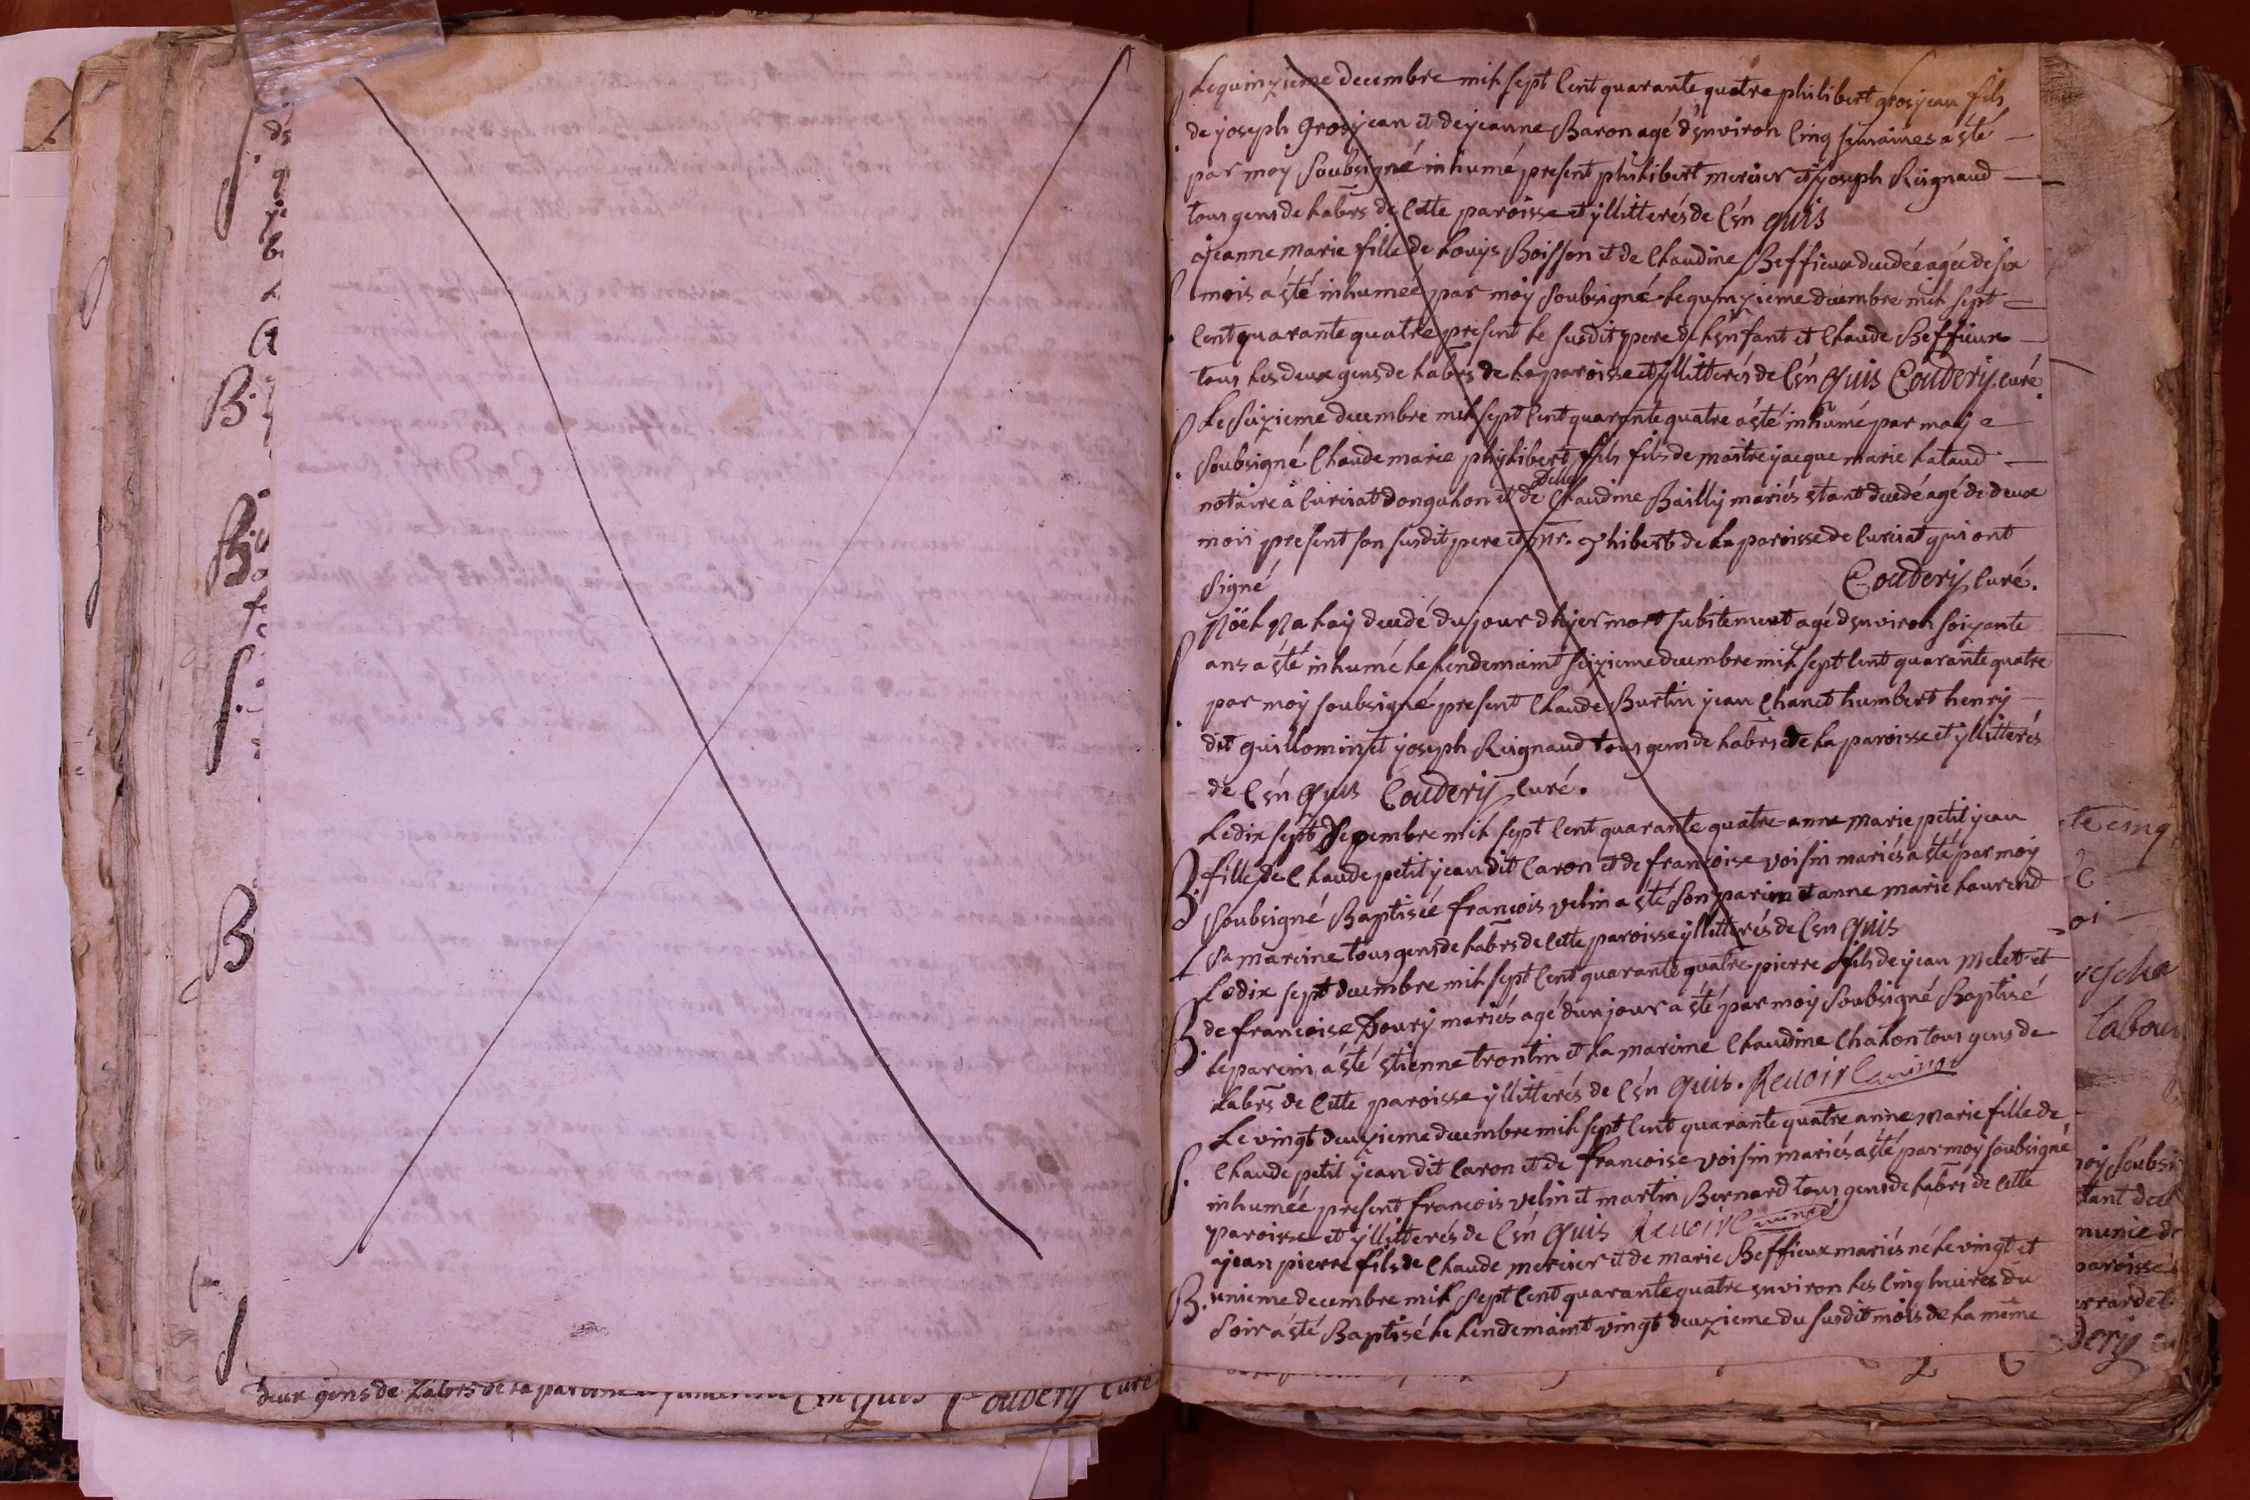 B.
B.
B
deux gens de labrs de la
Couderij curé
S
Le quinzieme decembre mil sept cent quarante quatre philibert grosjean fils
de joseph grosjean et de jeanne Baron agé d'environ cinq semaines a été
par moÿ Soubsigné inhumé present philibert mercier et joseph Reignaud
tous gens de labrs de cette paroisse et ÿllitterés de Cén quis
S
ajeanne marie fille de Louÿs Boisson et de Claudine Beffieux decedéé agéé de six
mois a été inhuméé par moÿ Soubsigné le quinzieme decembre mil sept
cent quarante quatre present le susdit pere de l'enfant et Claude Beffieux
tous les deux gens de labrs de la paroisse et ÿllitterés de Cén quis Couderij curé.
S
Le Seizieme decembre mil sept cent quarante quatre a été inhumé par moÿ
Soubsigné Claude marie philibert fils de maitre jacque marie Lataud
notaire a Curciat dongalon et de Delle Claudine Baillÿ mariés etant decedé agé de deux
mois present son susdit pere et de la paroisse de Curciat qui ont
signé Couderij curé.
S
Nöel decedé du jour d'hÿer mort subitement agé d'environ soixante
ans a été inhumé le lendemaint seizieme decembre mil sept cent quarante quatre
par moÿ soubsigné present Claude Burtin jean Chanet humbert henrÿ
dit guillomin et joseph Reignaud tous gens de labrs de la paroisse et ÿllitterés
de Cén quis Couderij curé.
B.
Le dix sept decembre mil sept cent quarante quatre anne marie petit jean
fille de Claude petit jean dit Caron et de francoise voisin mariés a été par moÿ
Soubsigné Baptiséé francois velin a été son parein et anne marie Laurend
Sa mareine tous gens de labrs de cette paroisse ÿllitterés de Cén quis
B.
Le dix sept decembre mil sept cent quarante quatre pierre fils de jean Melet et
de francoise Dourÿ mariés agé d'un jour a été par moÿ Soubsigné Baptisé
le parein a été étienne trontin et la mareine Claudine Chalon tous gens de
labrs de cette paroisse ÿllitterés de Cén quis.
S.
Le vingt deuzieme decembre mil sept cent quarante quatre anne marie fille de
Claude petit jean dit Caron et de francoise voisin mariés a été par moÿ soubsigné
inhuméé present francois velin et martin Bernard tous gens de labrs de cette
paroisse et ÿllitterés de Cén quis
B.
ajean pierre fils de Claude mercier et de marie Beffieux mariés né le vingt et
unieme decembre mil sept cent quarante quatre environ les cinq heures du
soir a été Baptisé le lendemaint vingt deuzieme du susdit mois de la même